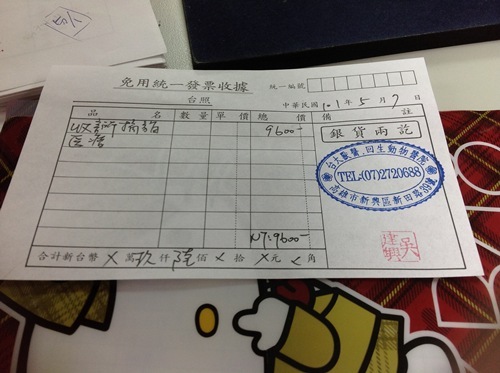 免用統一發票收據
統一編號
台照
中華民國101年5月7日
品名 數量 單價 總價 備註
9600-
医療
銀貨兩訖
台大獸醫.回生動物醫院
TEL:(07)2720688
高雄市新興區新田路39號
NT:9600-
合計新台幣 X 萬 玖 仟 陸 佰 X 拾 X 元 X 角
吳建興